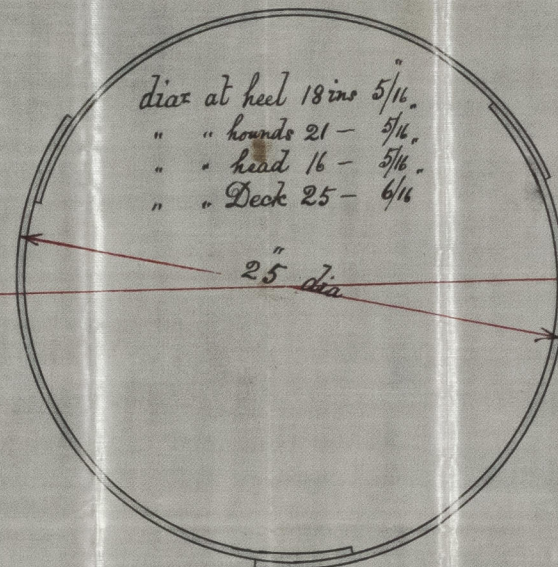 diar at heel 18 ins 5/16"
" " hounds 21 - 5/16"
" " head 16 - 5/16"
" " Deck 25 - 6/16
25" dia